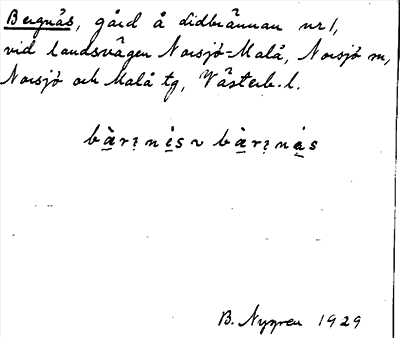 Bergnäs, gård å Lidbrännan nr 1,
vid landsvägen Norsjö-Malå, Norsjö sn,
Norsjö och Malå tg, Västerb. l.
bὰrꝫnὲs ~ bὰrꝫnάs
B. Nygren 1929